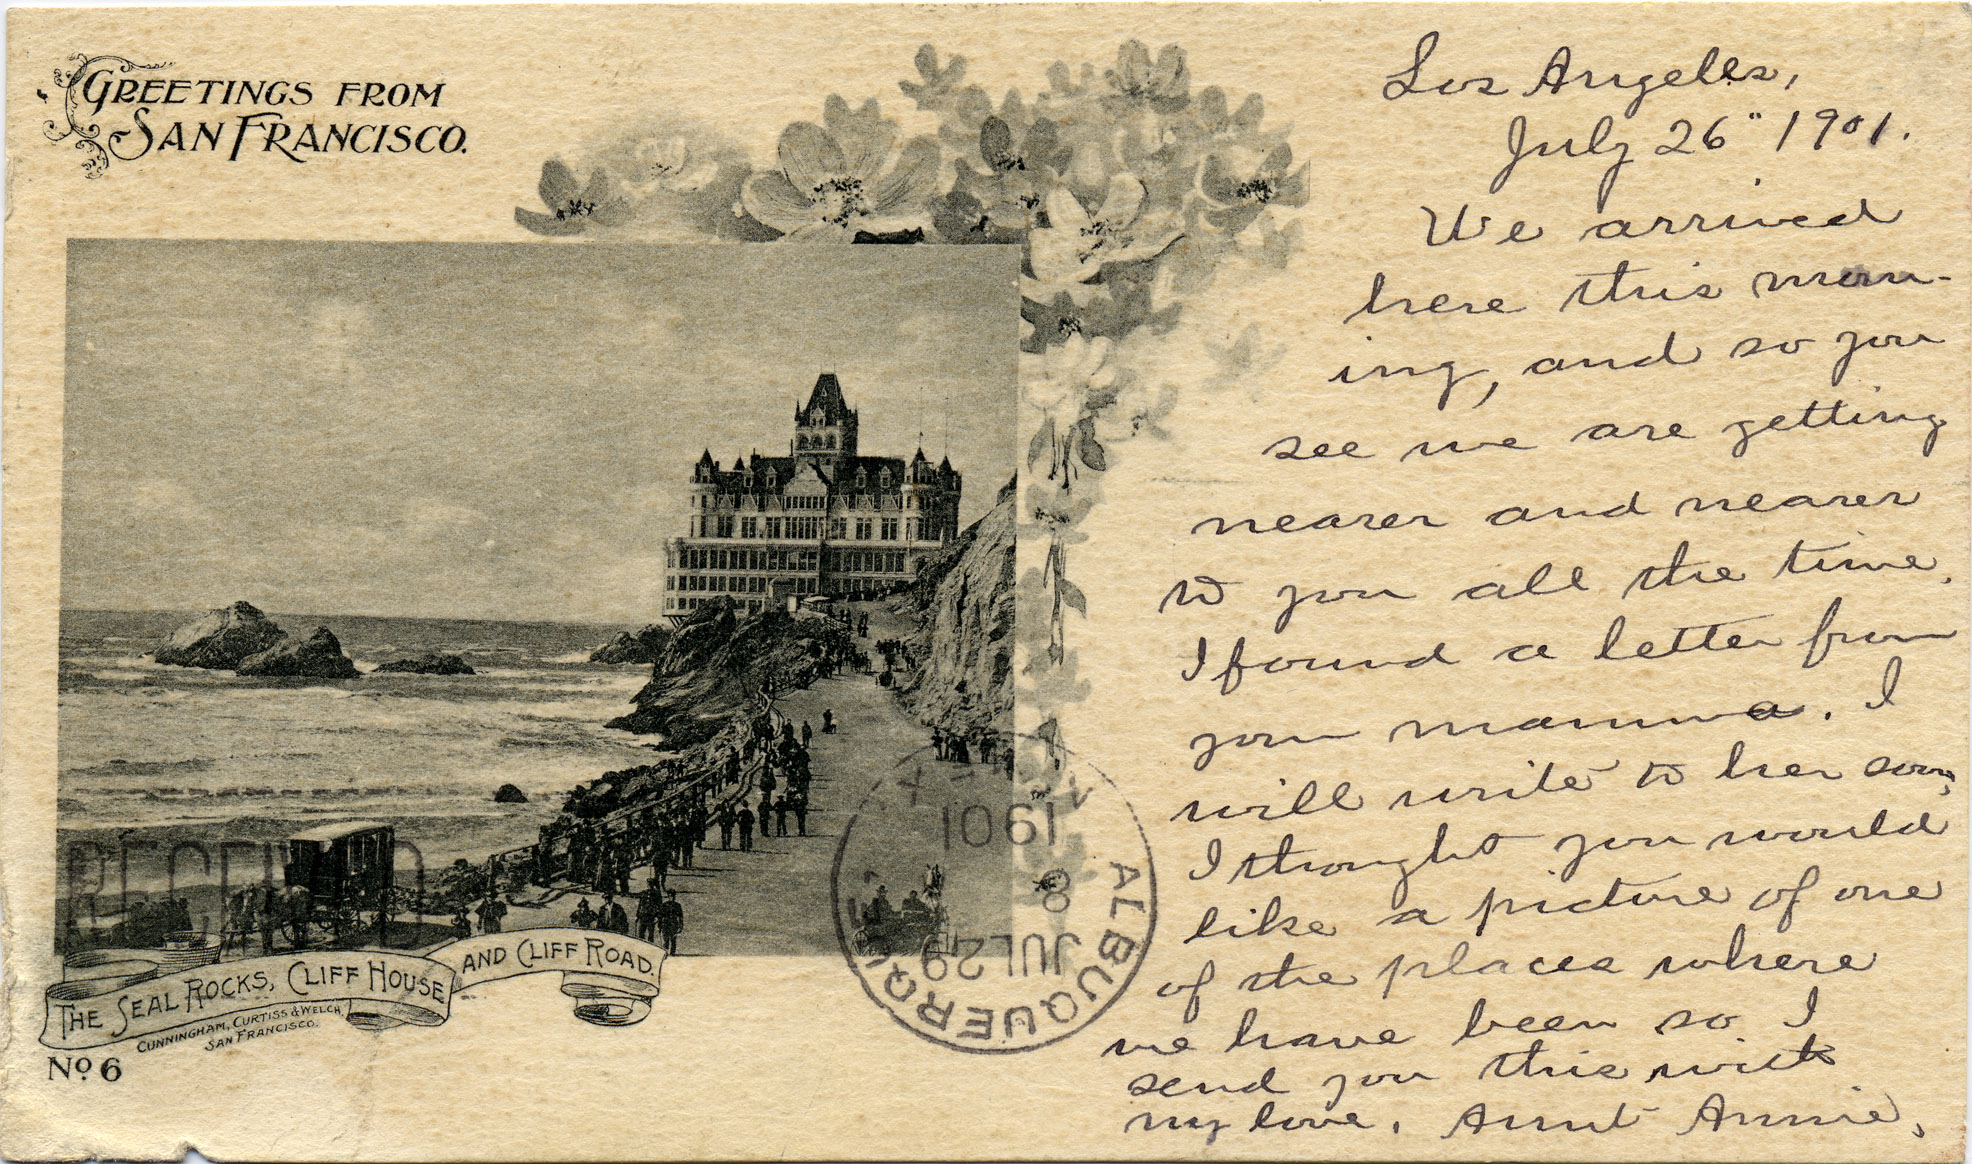 GREETINGS FROM
SAN FRANCISCO.
Los Angeles,
July 26" 1901.
We arrived
here this morn-
ing, and so you
see we are getting
nearer and nearer
to you all the time.
I found a letter from
your mamma. I
will write to her soon,
I thought you would
like a picture of one
of the places where
we have been so I
send you this with
my love. Aunt Annie,
RECEIVED
THE SEAL ROCKS, CLIFF HOUSE AND CLIFF ROAD.
CUNNINGHAM, CURTISS & WELCH,
SAN FRANCISCO.
No 6
ALBUQUERQUE
JUL 29
8
1901